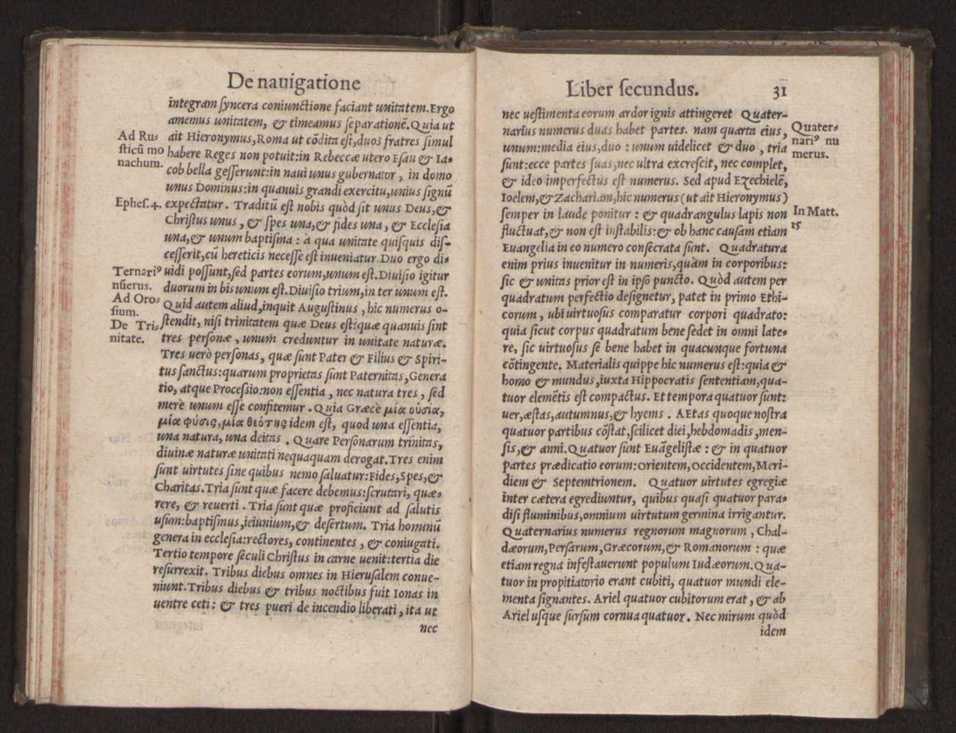 De nauigatione
integram ſyncera coniunctione faciant unitatem. Ergo
amemus unitatem, & timeamus ſeparationē. Quia ut
ait Hieronymus, Roma ut cōdita eſt, duos fratres ſimul
habere Reges non potuit: in Rebeccæ utero Eſau & Ia-
cob bella geſſerunt: in naui unus gubernator, in domo
unus Dominus: in quanuis grandi exercitu, unius ſignū
expectatur. Traditū eſt nobis quòd ſit unus Deus, &
Chriſtus unus, & ſpes una, & fides una, & Eccleſia
una, & unum baptiſma: à qua unitate quiſquis diſ-
ceſſerit, cū hereticis neceſſe eſt inueniatur. Duo ergo di-
uidi poſſunt, ſed partes eorum, unum eſt. Diuiſio igitur
duorum in bis unum eſt. Diuiſio trium, in ter unum eſt.
Quid autem aliud, inquit Auguſtinus, hic numerus o-
ſtendit, niſi trinitatem quæ Deus eſt: quæ quanuis ſint
tres perſonæ, unum creduntur in unitate naturæ.
Tres uerò perſonas, quæ ſunt Pater & Filius & Spiri-
tus ſanctus: quarum proprietas ſunt Paternitas, Genera
tio, atque Proceſsio: non eſſentia, nec natura tres, ſed
merè unum eſſe confitemur. Quia Græcè μία οὐσία,
μία φύσις, μία θιότης idem eſt, quod una eſſentia,
una natura, una deitas. Quare Perſonarum trinitas,
diuinæ naturæ unitati nequaquam derogat. Tres enim
ſunt uirtutes ſine quibus nemo ſaluatur: Fides, Spes, &
Charitas. Tria ſunt quæ facere debemus: ſcrutari, quæ-
rere, & reuerti. Tria ſunt quæ proficiunt ad ſalutis
uſum: baptiſmus, ieiunium, & deſertum. Tria hominū
genera in eccleſia: rectores, continentes, & coniugati.
Tertio tempore ſeculi Chriſtus in carne uenit: tertia die
reſurrexit. Tribus diebus omnes in Hieruſalem conue-
niunt. Tribus diebus & tribus noctibus fuit Ionas in
uentre ceti: & tres pueri de incendio liberati, ita ut
nec
Ad Ru-
ſticū mo
nachum.
Epheſ. 4.
Ternariꝰ
nūerus.
Ad Oro-
ſium.
De Tri-
nitate.
Liber ſecundus.
31
nec ueſtimenta eorum ardor ignis attingeret Quater-
narius numerus duas habet partes. nam quarta eius,
unum: media eius, duo: unum uidelicet & duo, tria
ſunt: ecce partes ſuas, nec ultra excreſcit, nec complet,
& ideo imperfectus eſt numerus. Sed apud Ezechielē,
Ioelem, & Zachariam, hic numerus (ut ait Hieronymus)
ſemper in laude ponitur: & quadrangulus lapis non
fluctuat, & non eſt inſtabilis: & ob hanc cauſam etiam
Euangelia in eo numero conſecrata ſunt. Quadratura
enim prius inuenitur in numeris, quàm in corporibus:
ſic & unitas prior eſt in ipſo puncto. Quòd autem per
quadratum perfectio deſignetur, patet in primo Ethi-
corum, ubi uirtuoſus comparatur corpori quadrato:
quia ſicut corpus quadratum bene ſedet in omni late-
re, ſic uirtuoſus ſe bene habet in quacunque fortuna
cōtingente. Materialis quippe hic numerus eſt: quia &
homo & mundus, iuxta Hippocratis ſententiam, qua-
tuor elemētis eſt compactus. Et tempora quatuor ſunt:
uer, æſtas, autumnus, & hyems. AEtas quoque noſtra
quatuor partibus cōſtat, ſcilicet diei, hebdomadis, men-
ſis, & anni. Quatuor ſunt Euāgeliſtæ: & in quatuor
partes prædicatio eorum: Orientem, Occidentem, Meri-
diem & Septemtrionem. Quatuor uirtutes egregiæ
inter cætera egrediuntur, quibus quaſi quatuor para-
diſi fluminibus, omnium uirtutum germina irrigantur.
Quaternarius numerus regnorum magnorum, Chal-
dæorum, Perſarum, Græcorum, & Romanorum: quæ
etiam regna infeſtauerunt populum Iudæorum. Qua-
tuor in propitiatorio erant cubiti, quatuor mundi ele-
menta ſignantes. Ariel quatuor cubitorum erat, & ab
Ariel uſque ſurſum cornua quatuor. Nec mirum quòd
idem
Quater-
nariꝰ nu
merus.
In Matt.
15